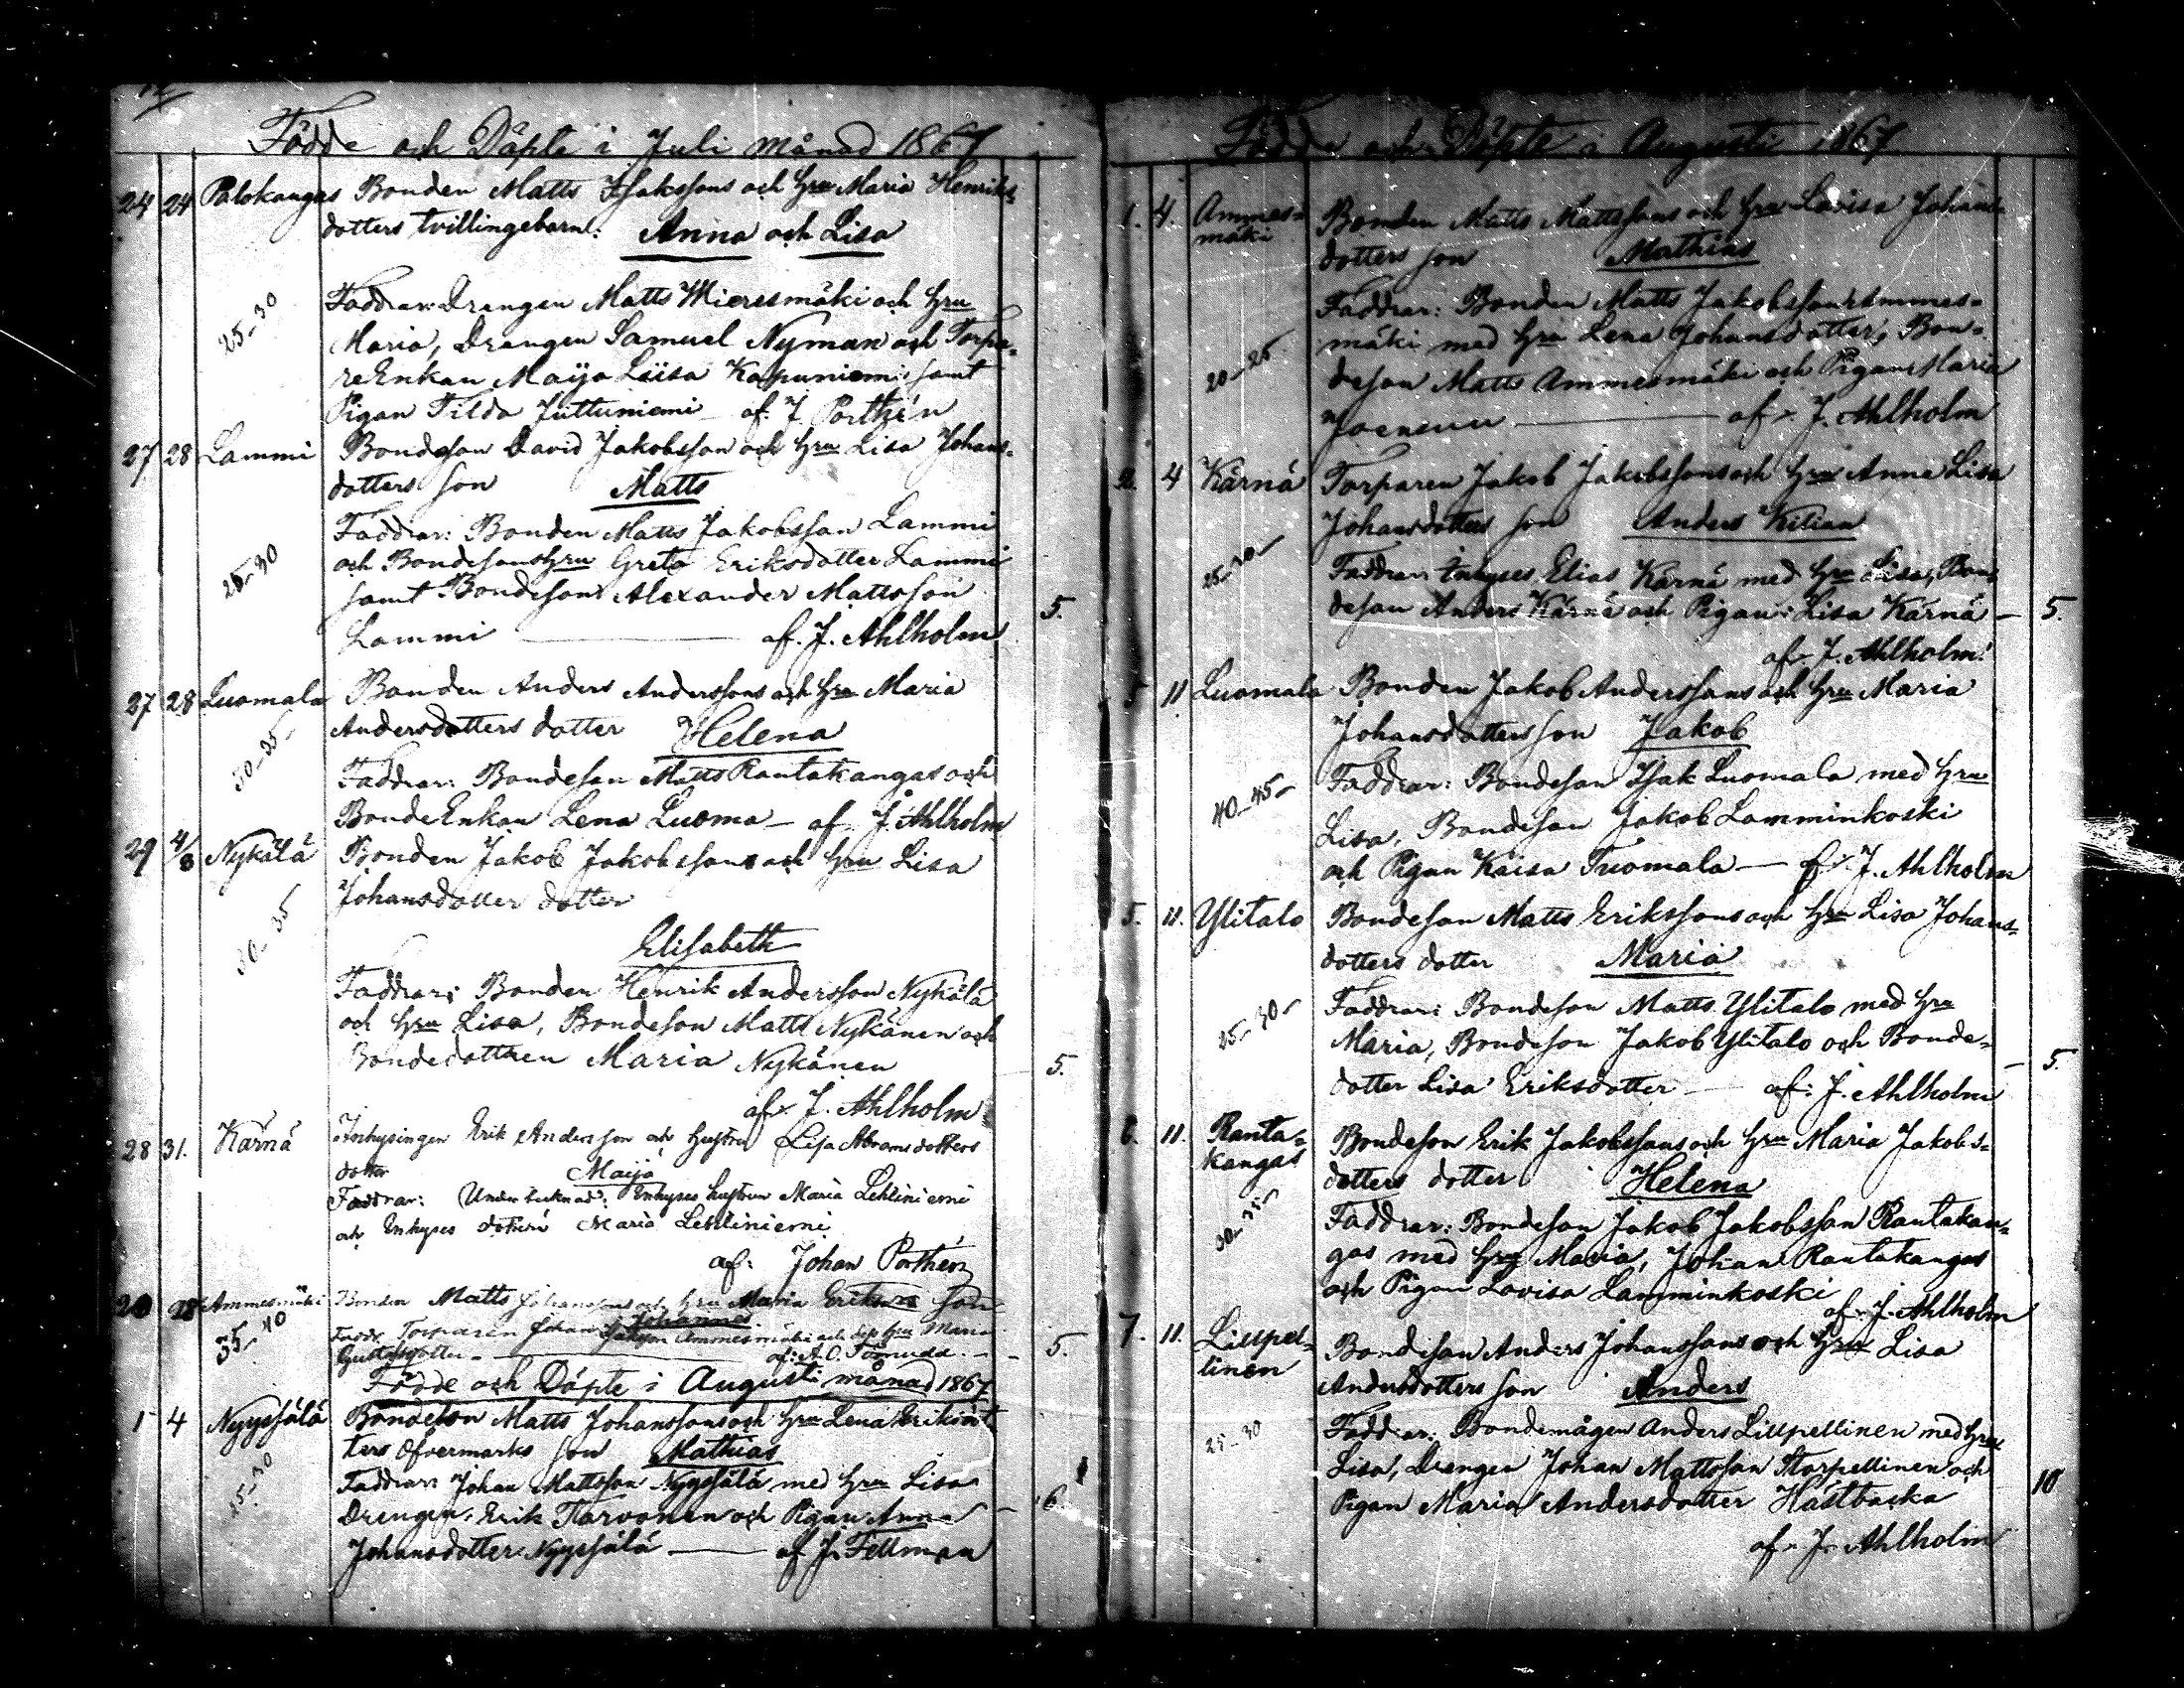 Födde och Döpte i Juli månad 1867
24 24 Palokangas Bonden Matts Isakssons och Hru Maria Henriks-
dotters tvillingebarn: Anna och Lisa
25-30
Faddrar: Drengen Matts Mieresmäki och Hru
Maria, Drengen Samuel Nyman och Torpa-
reEnkan Maija Liisa Kapuniemi samt
Pigan Tilda Juttuniemi - af: J Porthén
27 28 Lammi Bondeson David Jakobsson och Hru Lisa Johans-
dotters son Matts
25-30
Faddrar: Bonden Matts Jakobsson Lammi
och Bondesons Hru Greta Eriksdotter Lammi
samt Bondeson Alexander Mattsson
Lammi af. J. Ahlholm 5.
27 28 Luomala Bonden Anders Anderssons och Hru Maria
Andersdotters dotter Helena
30-35
Faddrar: Bondeson Matts Rantakangas och
BondeEnkan Lena Luoma - af J. Ahlholm
29 4/8 Nykälä Bonden Jakob Jakobssons och Hru Lisa
Johansdotter dotter
30-35
Elisabeth
Faddrar: Bonden Henrik Andersson Nykälä
och Hru Lisa, Bondeson Matts Nykänen och
Bondedottren Maria Nykänen 5.
af. J. Ahlholm
28 31. Kärnä Inhysingen Erik Andersson och hustru Lisa Abramsdotters
dotter Maija
Faddrar: Undertecknad: Enhyses hustrun Maria Lehtiniemi
och Enhyses dottern Maria Lehtiniemi
af: Johan Porthén
20 28 Ammesmäki Bonden Matts Johanssons och Hru Maria Eriks son
Johannes
35-40
Faddr. Torparen Johan Ammesmäki och dess Hru Maria
Gustafsdotter - af: A. O. Törnudd. - 5.
Födde och Döpte i Augusti månad 1867
1 4 Nyyssälä Bondeson Matts Johanssons och Hru Lena Eriksdot
ters Öfvermarks son Mathias
25-30
Faddrar: Johan Mattsson Nyyssälä med Hru Lisa
Drengen Erik Tarvonen och Pigan Anna - 6
Johansdotter Nyyssälä af J. Fellman
Födde och Döpte i Augusti 1867
1. 4. Ammes= Bonden Matts Mattssons och Hru Lovisa Johans
mäki dotters son Mathias
Faddrar: Bonden Matts Jakobsson Ammes=
20-25 mäki med Hru Lena Johansdotter, Bon=
deson Matts Ammesmäki och Pigan Maria
af. J. Ahlholm
2. 4 Kärnä Torparen Jakob Jakobssons och Hru Anna Lisa
Johansdotters son Anders Kilian
25-30-
Faddrar: Inhyses Elias Kärnä med Hru Lisa, Bon
deson Anders Kärnä och Pigan: Lisa Kärnä - 5.
af. J. Ahlholm.
5 11 Luomala Bonden Jakob Anderssons och Hru Maria
Johansdotters son Jakob
40-45-
Faddrar: Bondeson Isak Luomala med Hru
Lisa, Bondeson Jakob Lamminkoski
och Pigan Kaisa Tuomala - af. J. Ahlholm
5. 11. Ylitalo Bondeson Matts Erikssons och Hru Lisa Johans=
dotters dotter Maria
25-30-
Faddrar: Bondeson Matts Ylitalo med Hru
Maria, Bondeson Jakob Ylitalo och Bonde=
dotter Lisa Eriksdotter - af: J. Ahlholm - 5.
6. 11. Ranta= Bondeson Erik Jakobssons och Hru Maria Jakobs=
kangas dotters dotter Helena
30-35
Faddrar: Bondeson Jakob Jakobsson Rantakan=
gas med Hru Maria, Johan Rantakangas
och Pigan Lovisa Lamminkoski
af. J. Ahlholm
7. 11. Lillpel= Bondeson Anders Johanssons och Hru Lisa
linen Andersdotters son Anders
25-30
Faddrar: Bondemågen Anders Lillpellinen med Hru
Lisa, Drengen Johan Mattsson Storpellinen och
Pigan Maria Andersdotter Hästbacka 10
af. J. Ahlholm